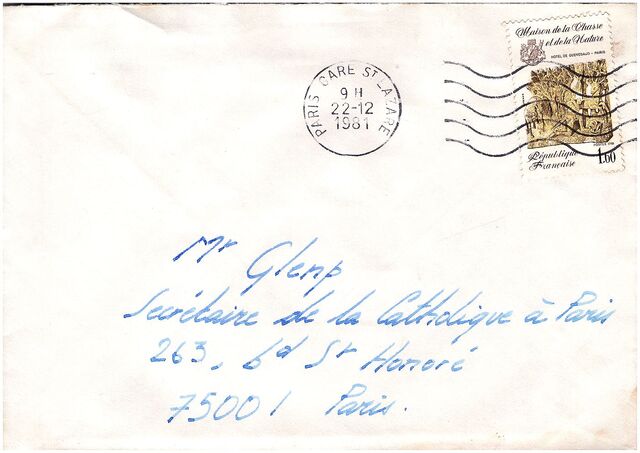 Maison de la Chasse
et de la Nature
HOTEL DE GUENEGAUD - PARIS
PARIS GARE ST LAZARE
9 H
22-12
1981
République
Française
1.60
Mr Glemp
Secrétaire de la Catholique à Paris
263, bd St Honoré
75001 Paris.